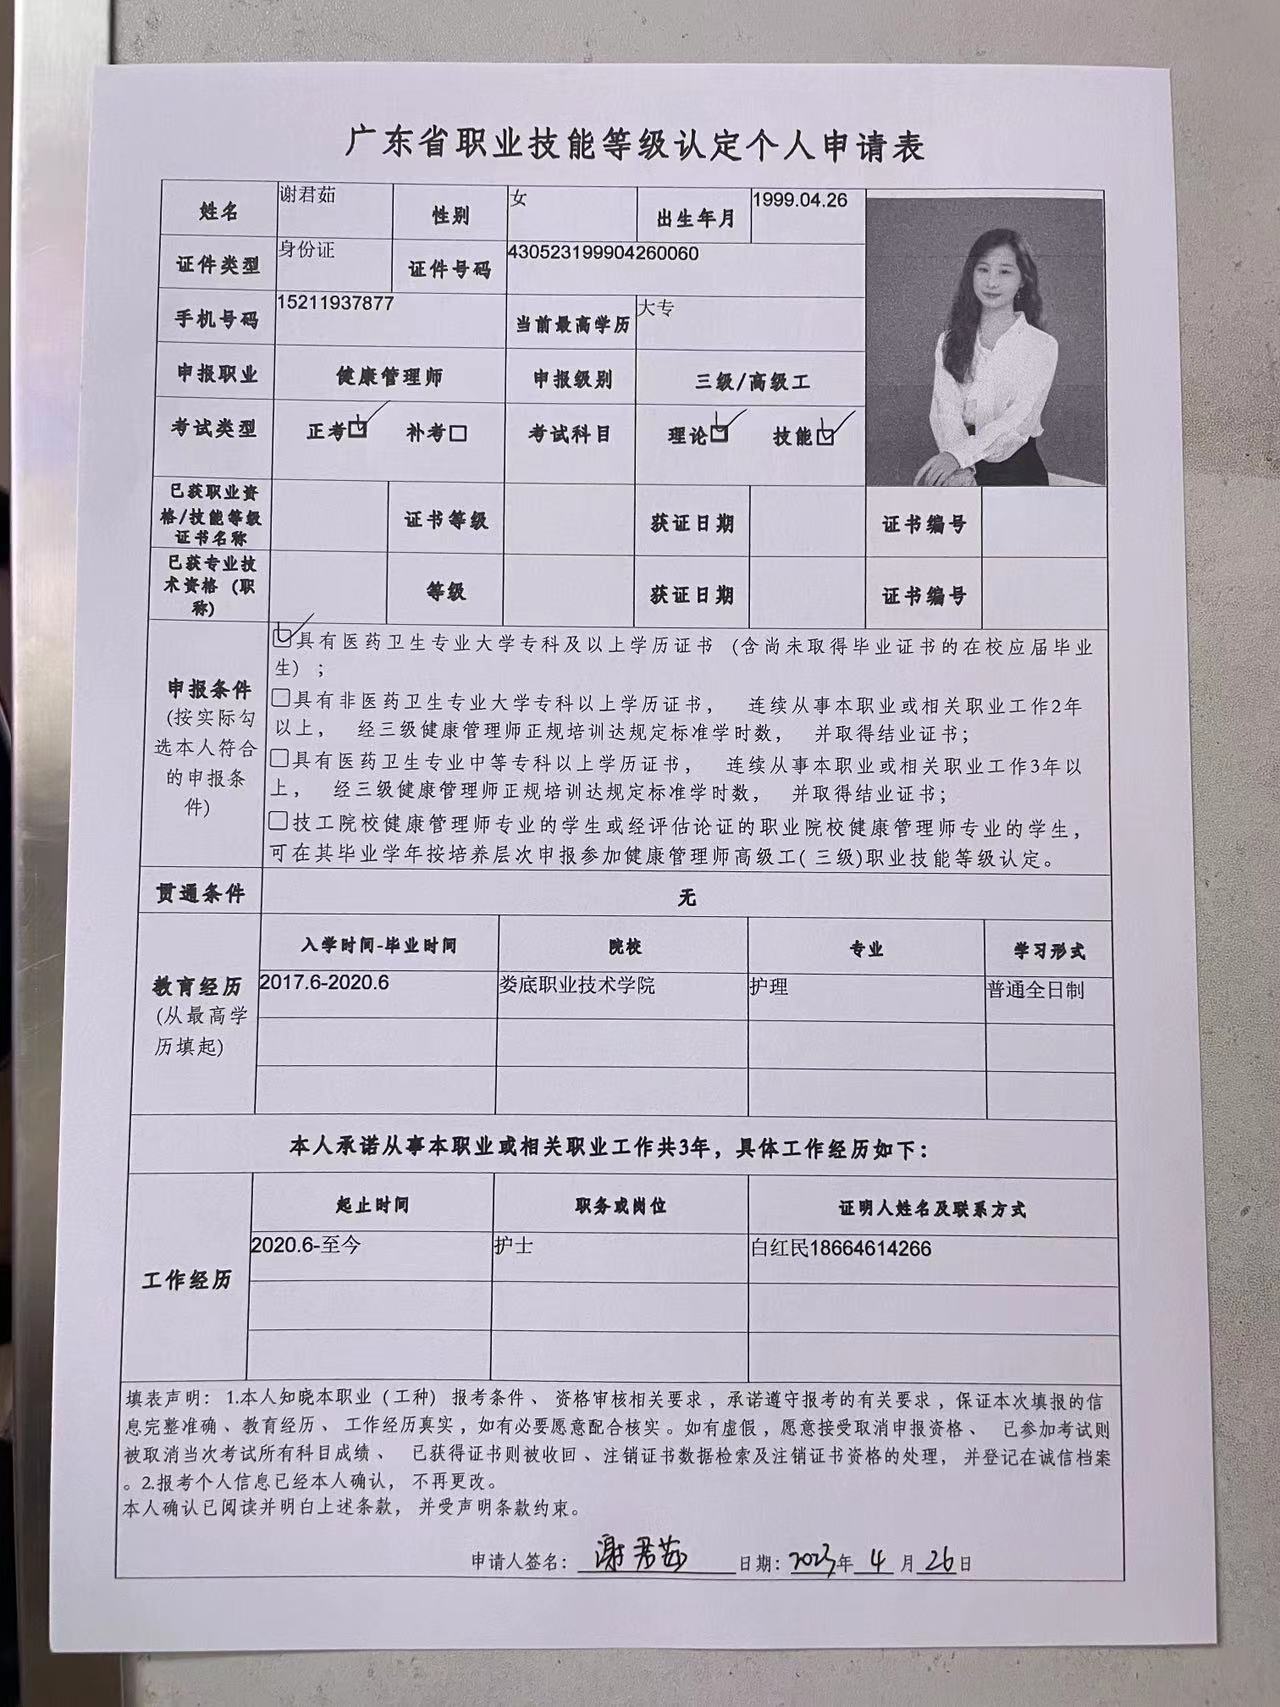 广东省职业技能等级认定个人申请表
姓名 谢君茹 性别 女 出生年月 1999.04.26
证件类型 身份证 证件号码 430523199904260060
手机号码 15211937877 当前最高学历 大专
申报职业 健康管理师 申报级别 三级/高级工
考试类型 正考☑ 补考□ 考试科目 理论☑ 技能☑
已获职业资
格/技能等级
证书名称
证书等级 获证日期 证书编号
已获专业技
术资格（职
称）
等级 获证日期 证书编号
申报条件
(按实际勾
选本人符合
的申报条
件)
☑具有医药卫生专业大学专科及以上学历证书（含尚未取得毕业证书的在校应届毕业
生）；
□具有非医药卫生专业大学专科以上学历证书， 连续从事本职业或相关职业工作2年
以上， 经三级健康管理师正规培训达规定标准学时数， 并取得结业证书；
□具有医药卫生专业中等专科以上学历证书， 连续从事本职业或相关职业工作3年以
上， 经三级健康管理师正规培训达规定标准学时数， 并取得结业证书；
□技工院校健康管理师专业的学生或经评估论证的职业院校健康管理师专业的学生，
可在其毕业学年按培养层次申报参加健康管理师高级工( 三级)职业技能等级认定。
贯通条件 无
教育经历
(从最高学
历填起)
入学时间-毕业时间 院校 专业 学习形式
2017.6-2020.6 娄底职业技术学院 护理 普通全日制
本人承诺从事本职业或相关职业工作共3年，具体工作经历如下：
工作经历
起止时间 职务或岗位 证明人姓名及联系方式
2020.6-至今 护士 白红民18664614266
填表声明： 1.本人知晓本职业（工种）报考条件、 资格审核相关要求，承诺遵守报考的有关要求，保证本次填报的信
息完整准确、教育经历、 工作经历真实，如有必要愿意配合核实。如有虚假，愿意接受取消申报资格、 已参加考试则
被取消当次考试所有科目成绩、 已获得证书则被收回、注销证书数据检索及注销证书资格的处理，并登记在诚信档案
。2.报考个人信息已经本人确认， 不再更改。
本人确认已阅读并明白上述条款， 并受声明条款约束。
申请人签名： 谢君茹 日期：2023年 4 月 26 日